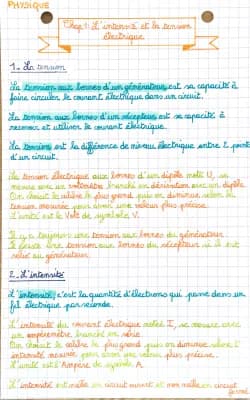 PHYSIQUE
Chap 1: L'intensité et la tension
électrique
1 - La tension
La tension aux bornes d'un générateur est sa capacité à
faire circuler le courant électrique dans un circuit.
La tension aux bornes d'un récepteur est sa capacité à
recevoir et utiliser le courant électrique.
La tension est la différence de niveau électrique entre 2 points
d'un circuit.
La tension électrique aux bornes d'un dipôle noté U, se
mesure avec un voltmètre branché en dérivation avec un dipôle.
On choisit le calibre le plus grand puis on diminue selon la
tension mesurée pour avoir une valeur plus précise.
L'unité est le Volt de symbole V.
Il y a toujours une tension aux bornes du générateur.
Il existe une tension aux bornes du récepteur si il est
relié au générateur.
2 - L'intensité
L'intensité, c'est la quantité d'électrons qui passe dans un
fil électrique par seconde.
L'intensité du courant électrique notée I, se mesure avec
un ampèremètre branché en série.
On choisit le calibre le plus grand puis on diminue selon l'
intensité mesurée pour avoir une valeur plus précise.
L'unité est l'Ampère de symbole A.
L'intensité est nulle en circuit ouvert et non nulle en circuit
fermé.